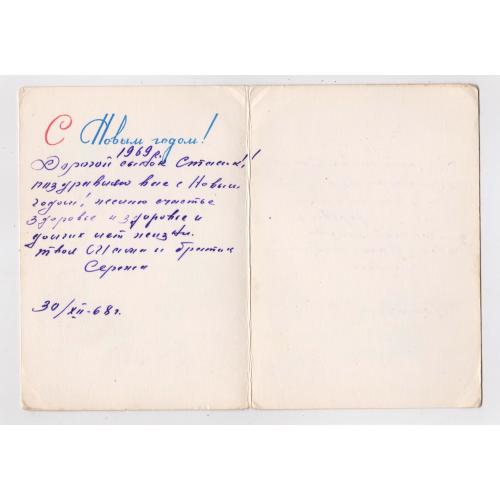 С Новым годом!
1969 г.
Дорогой сынок Стасик!
поздравляю вас с Новым
годом! счастье
здоровье и здоровье и
долгих лет жизни.
твоя мама и братик
Сережа
30/XII-68 г.